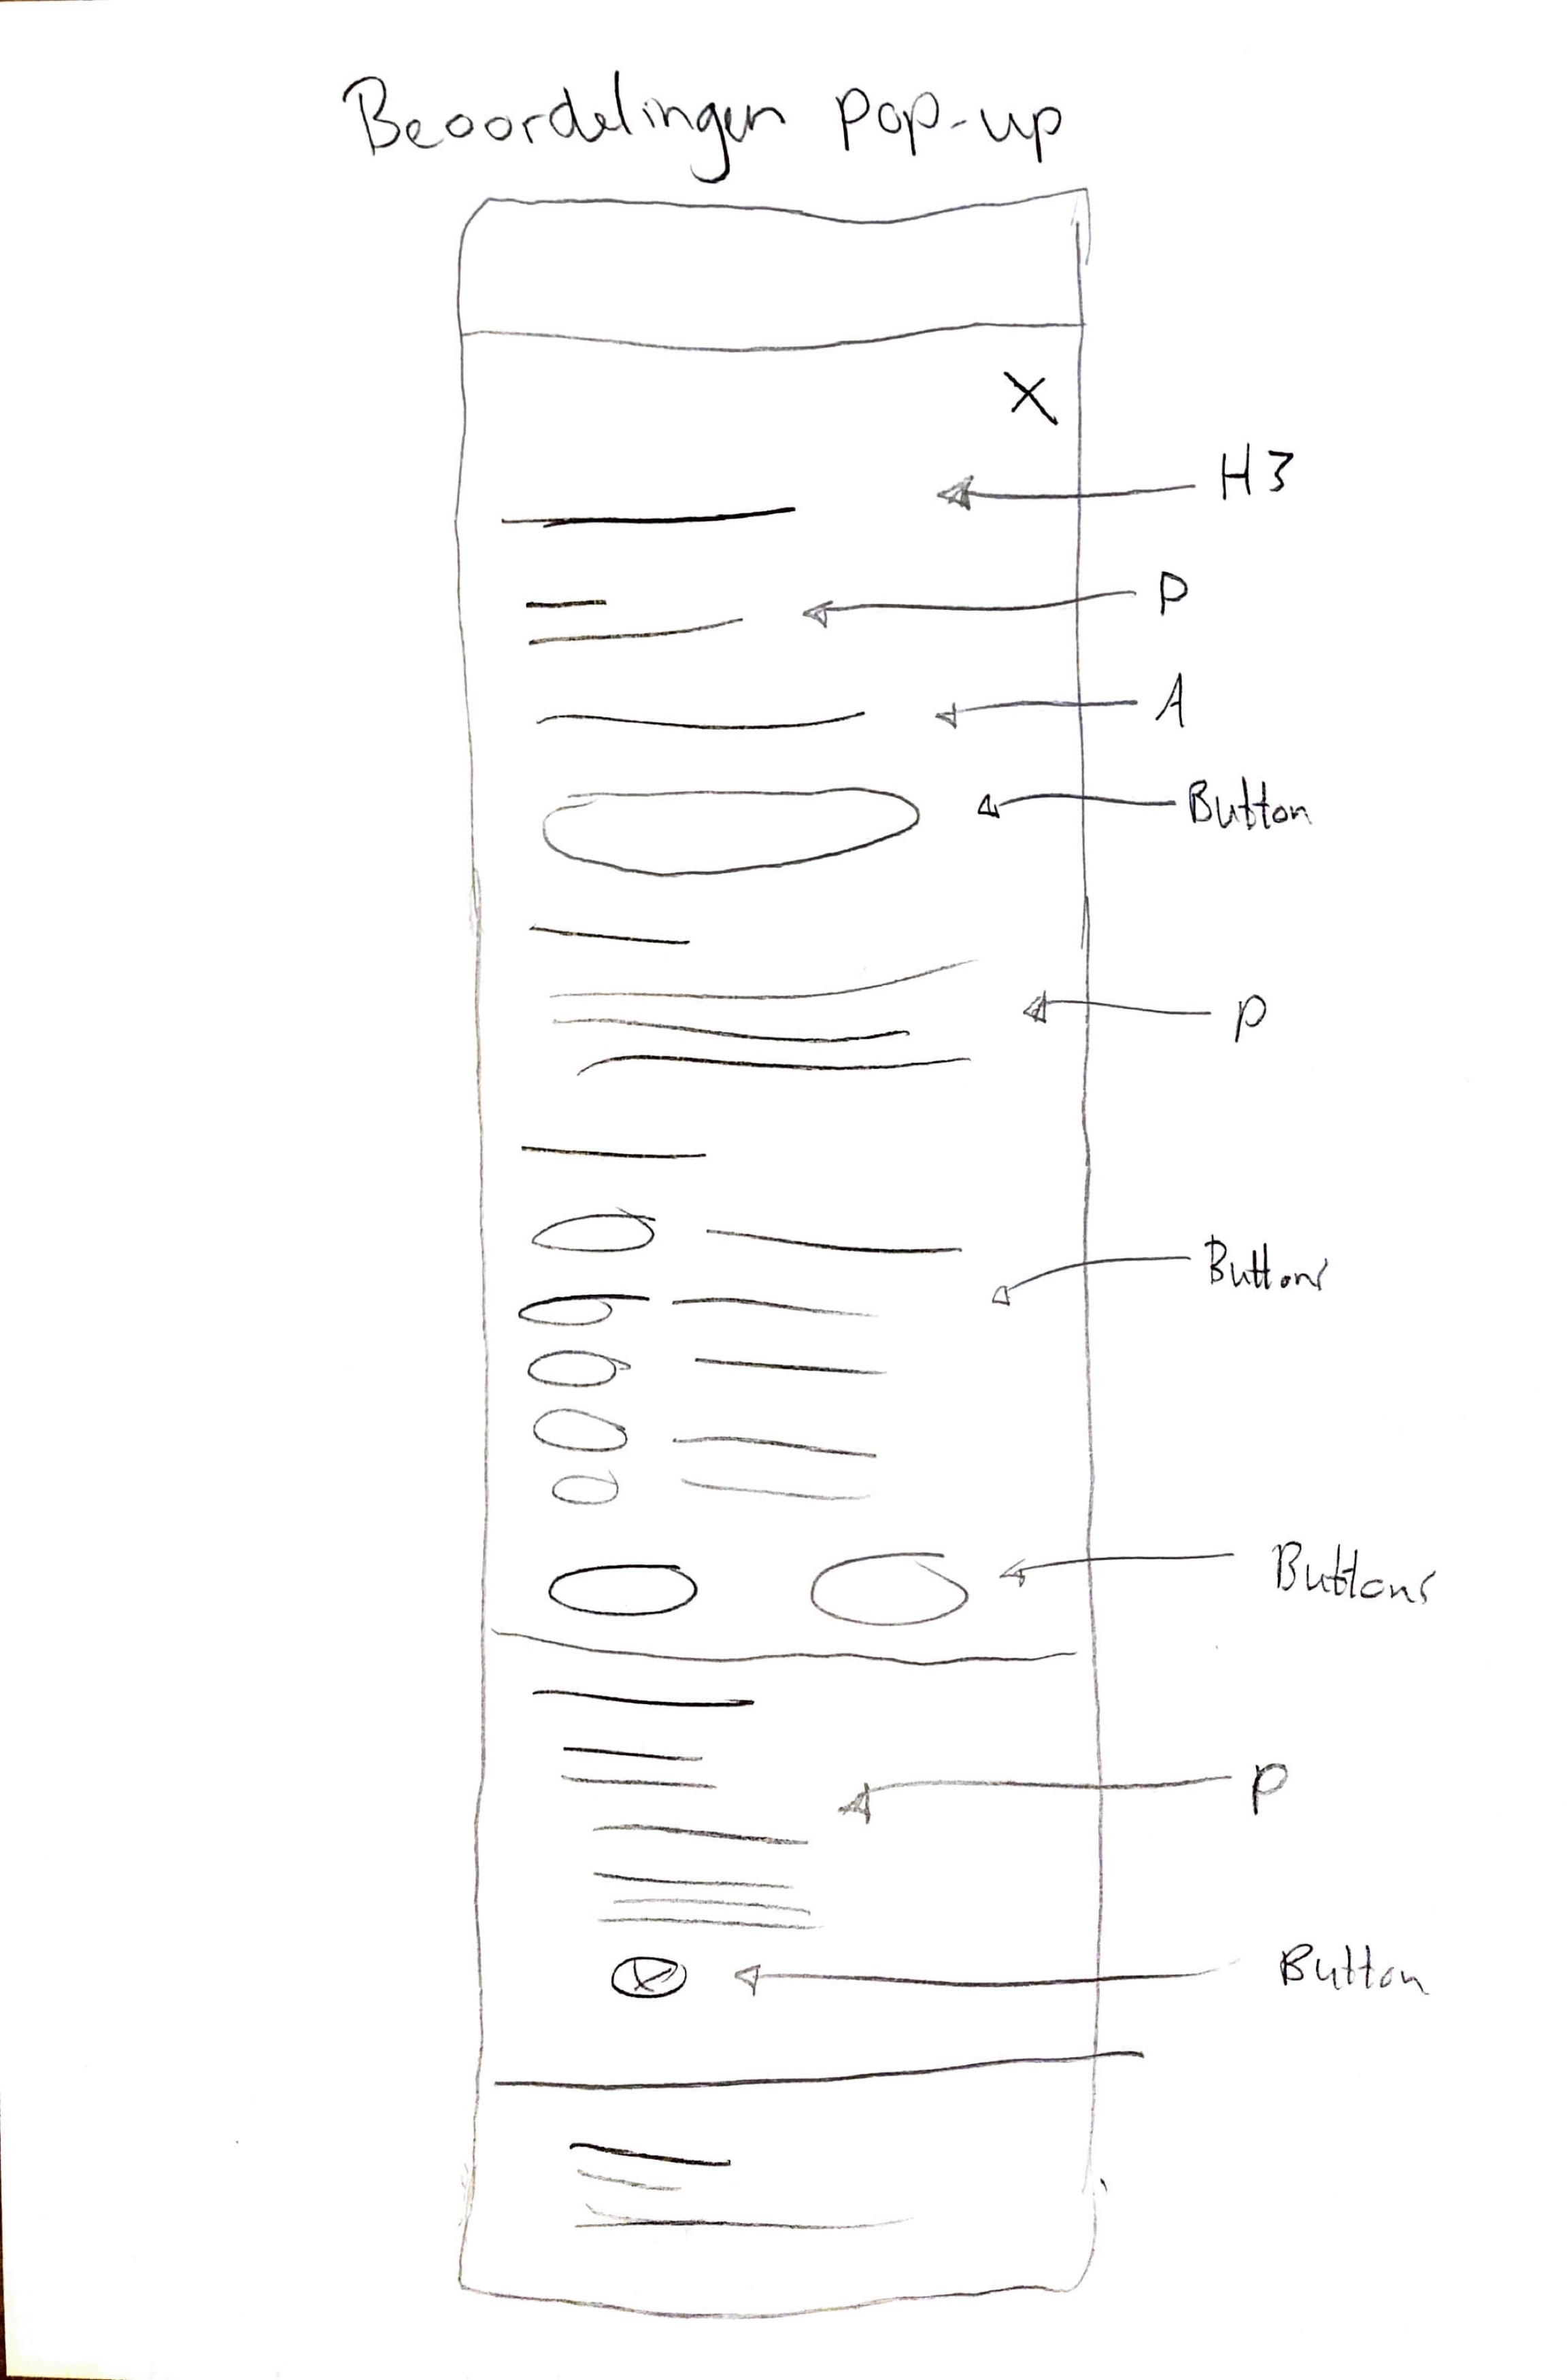 Beoordelingen pop-up
X
H3
P
A
Button
P
Buttons
Buttons
P
X
Button